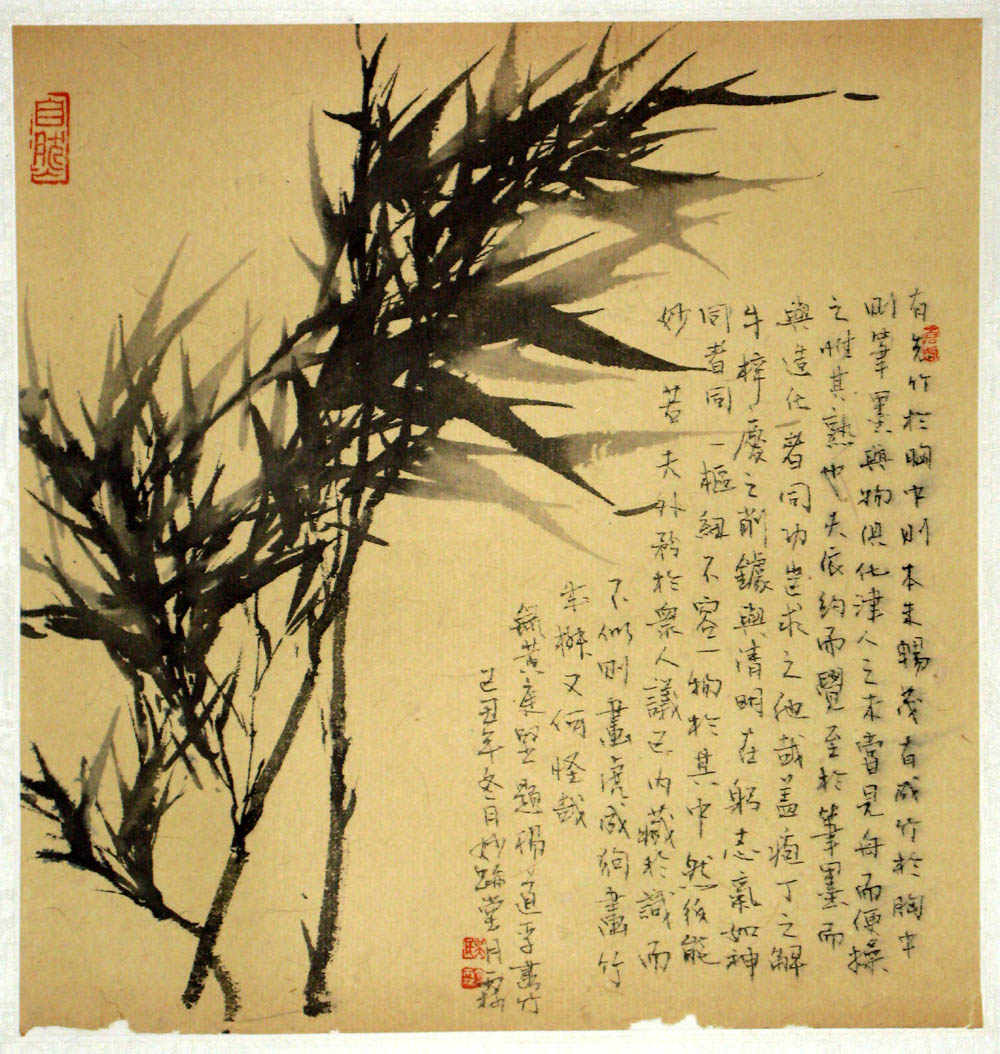 自然
有先竹於胸中則本末暢茂有成竹於胸中
則筆墨與物俱化津人之未嘗見舟而便操
之惟其熟也夫依約而覺至於筆墨而
與造化者同功豈求之他哉蓋庖丁之解
牛梓慶之削鐻與清明在躬志氣如神
同者同一樞紐不容一物於其中然後能
妙 若夫外矜於衆人議己內藏於識而
不似則畫虎成狗畫竹
又何怪哉
錄黃庭堅題楊道孚畫竹
己丑年冬日妙堂月霖